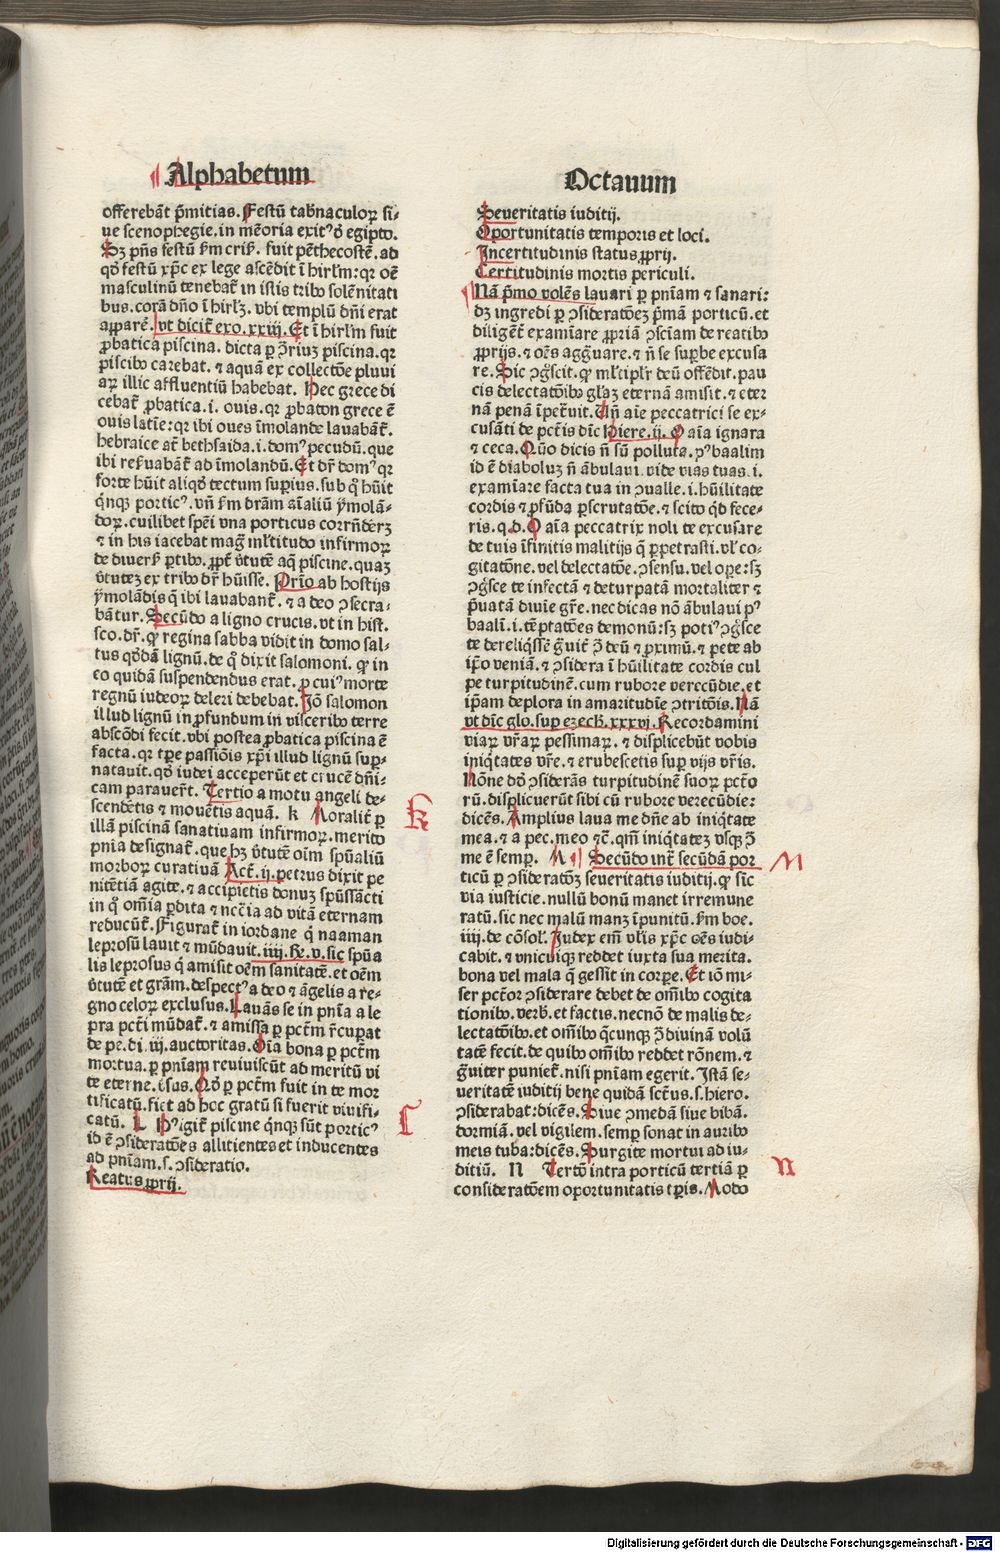 Alphabetum
offerebāt p̄mitias. Festū tab̄naculoꝝ si⸗
ue scenophegie. in mēoria exitꝰ ō egipto.
Sꝫ pn̄s festū ẜm criẜ. fuit pēthecostē. ad
qd̓ festū xp̄c ex lege ascēdit ī hirlm̄: qꝛ oē
masculinū tenebat̄ in istis tribꝰ solēnitati
bus. corā dño ī hirlꝫ. vbi templū dñi erat
apparē. vt dicit̄ exo. xxiij. Et ī hirlm̄ fuit
ꝓbatica piscina. dicta ꝑ ꝯriuꝫ piscina. qꝛ
piscibꝰ carebat. ⁊ aquā ex collectōe pluui
aꝝ illic affluentiū habebat. Hec grece di
cebat̄ ꝓbatica. i. ouis. qꝛ ꝓbaton grece ē
ouis latīe: qꝛ ibi oues īmolande lauabāt̄.
hebraice at̄ bethsaida. i. domꝰ pecudū. que
ibi reẜuabāt̄ ad īmolandū. Et dr̄ domꝰ qꝛ
forte hūit aliqd̓ tectum suꝑius. sub q̊ hūit
qͥnqꝫ porticꝰ. vn̄ ẜm drām aīaliū ymolā⸗
doꝝ. cuilibet spēi vna porticus corrn̄derꝫ
⁊ in his iacebat mag̃ mĺtitudo infirmoꝝ
de diuerẜ ꝑtibꝰ. ꝓpt̄ v̓tutē aq̄ piscine. quaꝫ
v̓tuteꝫ ex tribꝰ dr̄ hūisse. Prīo ab hostijs
ymolādis q̄ ibi lauabant̄. ⁊ a deo ꝯsecra⸗
bātur. Secūdo a ligno crucis. vt in hist.
sco. dr̄. ꝙ regina sabba vidit in domo sal⸗
tus qd̓dā lignū. de q̊ dixit salomoni. ꝙ in
eo quidā suspendendus erat. ꝑ cuiꝰ morte
regnū iudeoꝝ deleri debebat. Jō salomon
illud lignū in ꝓfundum in visceribꝰ terre
abscōdi fecit. vbi postea ꝓbatica piscina ē
facta. qꝛ tꝑe passiōis xp̄i illud lignū suꝑ⸗
natauit. qd̓ iudei acceperūt et crucē dñi⸗
cam parauer̄t. Tertio a motu angeli de⸗
scendētis ⁊ mouētis aquā. k Moralit̄ ꝑ
illā piscinā sanatiuam infirmoꝝ. merito
pn̄ia designat̄. que hꝫ v̓tutē oīm spūaliū
morboꝝ curatiuā Act̄. ij. petrus dixit pe
nitētiā agite. ⁊ accipietis donuꝫ spūssācti
in q̊ om̄ia ꝑdita ⁊ nccīa ad vitā eternam
reducūt̄. Figurat̄ in iordane q̊ naaman
leprosū lauit ⁊ mūdauit. iiij. Re. v. sic spūa
lis leprosus q̄ amisit oēm sanitatē. et oēm
v̓tutē et gr̄am. despectꝰ a deo ⁊ āgelis a re⸗
gno celoꝝ exclusus. Lauās se in pn̄ia a le
pra pct̄i mūdat̄. ⁊ amissa ꝑ pct̄m r̄cuꝑat
de pe. di. iij. auctoritas. Oīa bona ꝑ pct̄m
mortua. ꝑ pn̄iam reuiuiscūt ad meritū vi
te eterne. isus. Qd̓ ꝑ pct̄m fuit in te mor
tificatū. fiet ad hoc gratū si fuerit viuifi⸗
catū. L Hꝰ igit̄ piscine qͥnqꝫ sūt porticꝰ
id ē ꝯsideratōes allitientes et inducentes
ad pn̄iam. s. ꝯsideratio.
Reatus ꝓprij.
k
L
Octauum
Seueritatis iuditij.
Oportunitatis temporis et loci.
Incertitudinis status ꝓprij.
Certitudinis mortis periculi.
Nā p̄mo volēs lauari ꝑ pn̄iam ⁊ sanari:
dꝫ ingredi ꝑ ꝯsideratōeꝫ p̄mā porticū. et
diligēt̄ examīare ꝓpriā ꝯsciam de reatibꝰ
ꝓprijs. ⁊ oēs aggͣuare. ⁊ nō se suꝑbe excusa
re. Sic ꝯgͦscit. ꝙ mĺtiplr̄ deū offēdit. pau
cis delectatōibꝰ gĺaꝫ eternā amisit. ⁊ eter
nā penā īpet̄uit. Vn̄ aīe peccatrici se ex⸗
cusāti de pct̄is dīc Hiere. ij. O aīa ignara
⁊ ceca. Quō dicis nō sū polluta. pꝰ baalim
id ē diaboluꝫ nō ābulaui. vide vias tuas. i.
examīare facta tua in ꝯualle. i. hūilitate
cordis ⁊ ꝓfūda ꝑscrutatōe. ⁊ scito qd̓ fece⸗
ris. q. d. O aīa peccatrix noli te excusare
de tuis īfinitis malitijs q̄ ꝑpetrasti. vĺ co⸗
gitatōne. vel delectatōe. ꝯsensu. vel oꝑe: sꝫ
ꝯgͦsce te infectā ⁊ deturpatā mortaliter ⁊
p̓uatā diuīe gr̄e. nec dicas nō ābulaui pꝰ
baali. i. tēptatōes demonū: sꝫ potiꝰ ꝯgͦsce
te dereliqͥssē gͣuit̄ ꝯ̄ deū ⁊ ꝓximū. ⁊ pete ab
ip̄o veniā. ⁊ ꝯsidera ī hūilitate cordis cul
pe turpitudinē. cum rubore verecūdie. et
ip̄am deplora in amaritudīe ꝯtritōis. Nā
vt dīc glo. suꝑ eꝫech. xxxvj. Recordamini
viaꝝ vr̄aꝝ pessimaꝝ. ⁊ displicebūt vobis
iniqͥtates vr̄e. ⁊ erubescetis suꝑ vijs vr̄is.
Nōne dd̓ ꝯsiderās turpitudinē suoꝝ pct̄o
rū. displicuerūt sibi cū rubore verecūdie:
dicēs. Amplius laua me dñe ab iniqͥtate
mea. ⁊ a pec. meo ⁊c̄. qm̄ iniqͥtateꝫ vsqꝫ ꝯ̄
me ē semꝑ. M Secūdo int̄ secūdā por
ticū ꝑ ꝯsideratōꝫ seueritatis iuditij. ꝙ sic̄
via iusticie. nullū bonū manet irremune
ratū. sic nec malū manꝫ īpunitū. ẜm boe.
iiij. de cōsol. Judex em̄ vĺis xp̄c oēs iudi⸗
cabit. ⁊ vnicuiqꝫ reddet iuxta sua merita.
bona vel mala q̄ gessit in corꝑe. Et iō mi⸗
ser pct̄or ꝯsiderare debet de om̄ibꝰ cogita
tionibꝰ. verẜ. et factis. necnō de malis de⸗
lectatōibꝰ. et om̄ibꝰ qͥcunqꝫ ꝯ̄ diuinā volū
tatē fecit. de quibꝰ om̄ibꝰ reddet rōnem. ⁊
gͣuiter puniet̄. nisi pn̄iam egerit. Istā se⸗
ueritatē iuditij bene quidā sct̄us. s. hiero.
ꝯsiderabat: dicēs. Siue ꝯmedā siue bibā.
dormiā. vel vigilem. semꝑ sonat in auribꝰ
meis tuba: dicēs. Surgite mortui ad iu⸗
ditiū. N Tertō intra porticū tertiā ꝑ
consideratōem oportunitatis tꝑis. Modo
M
N
Digitalisierung gefördert durch die Deutsche Forschungsgemeinschaft - DFG